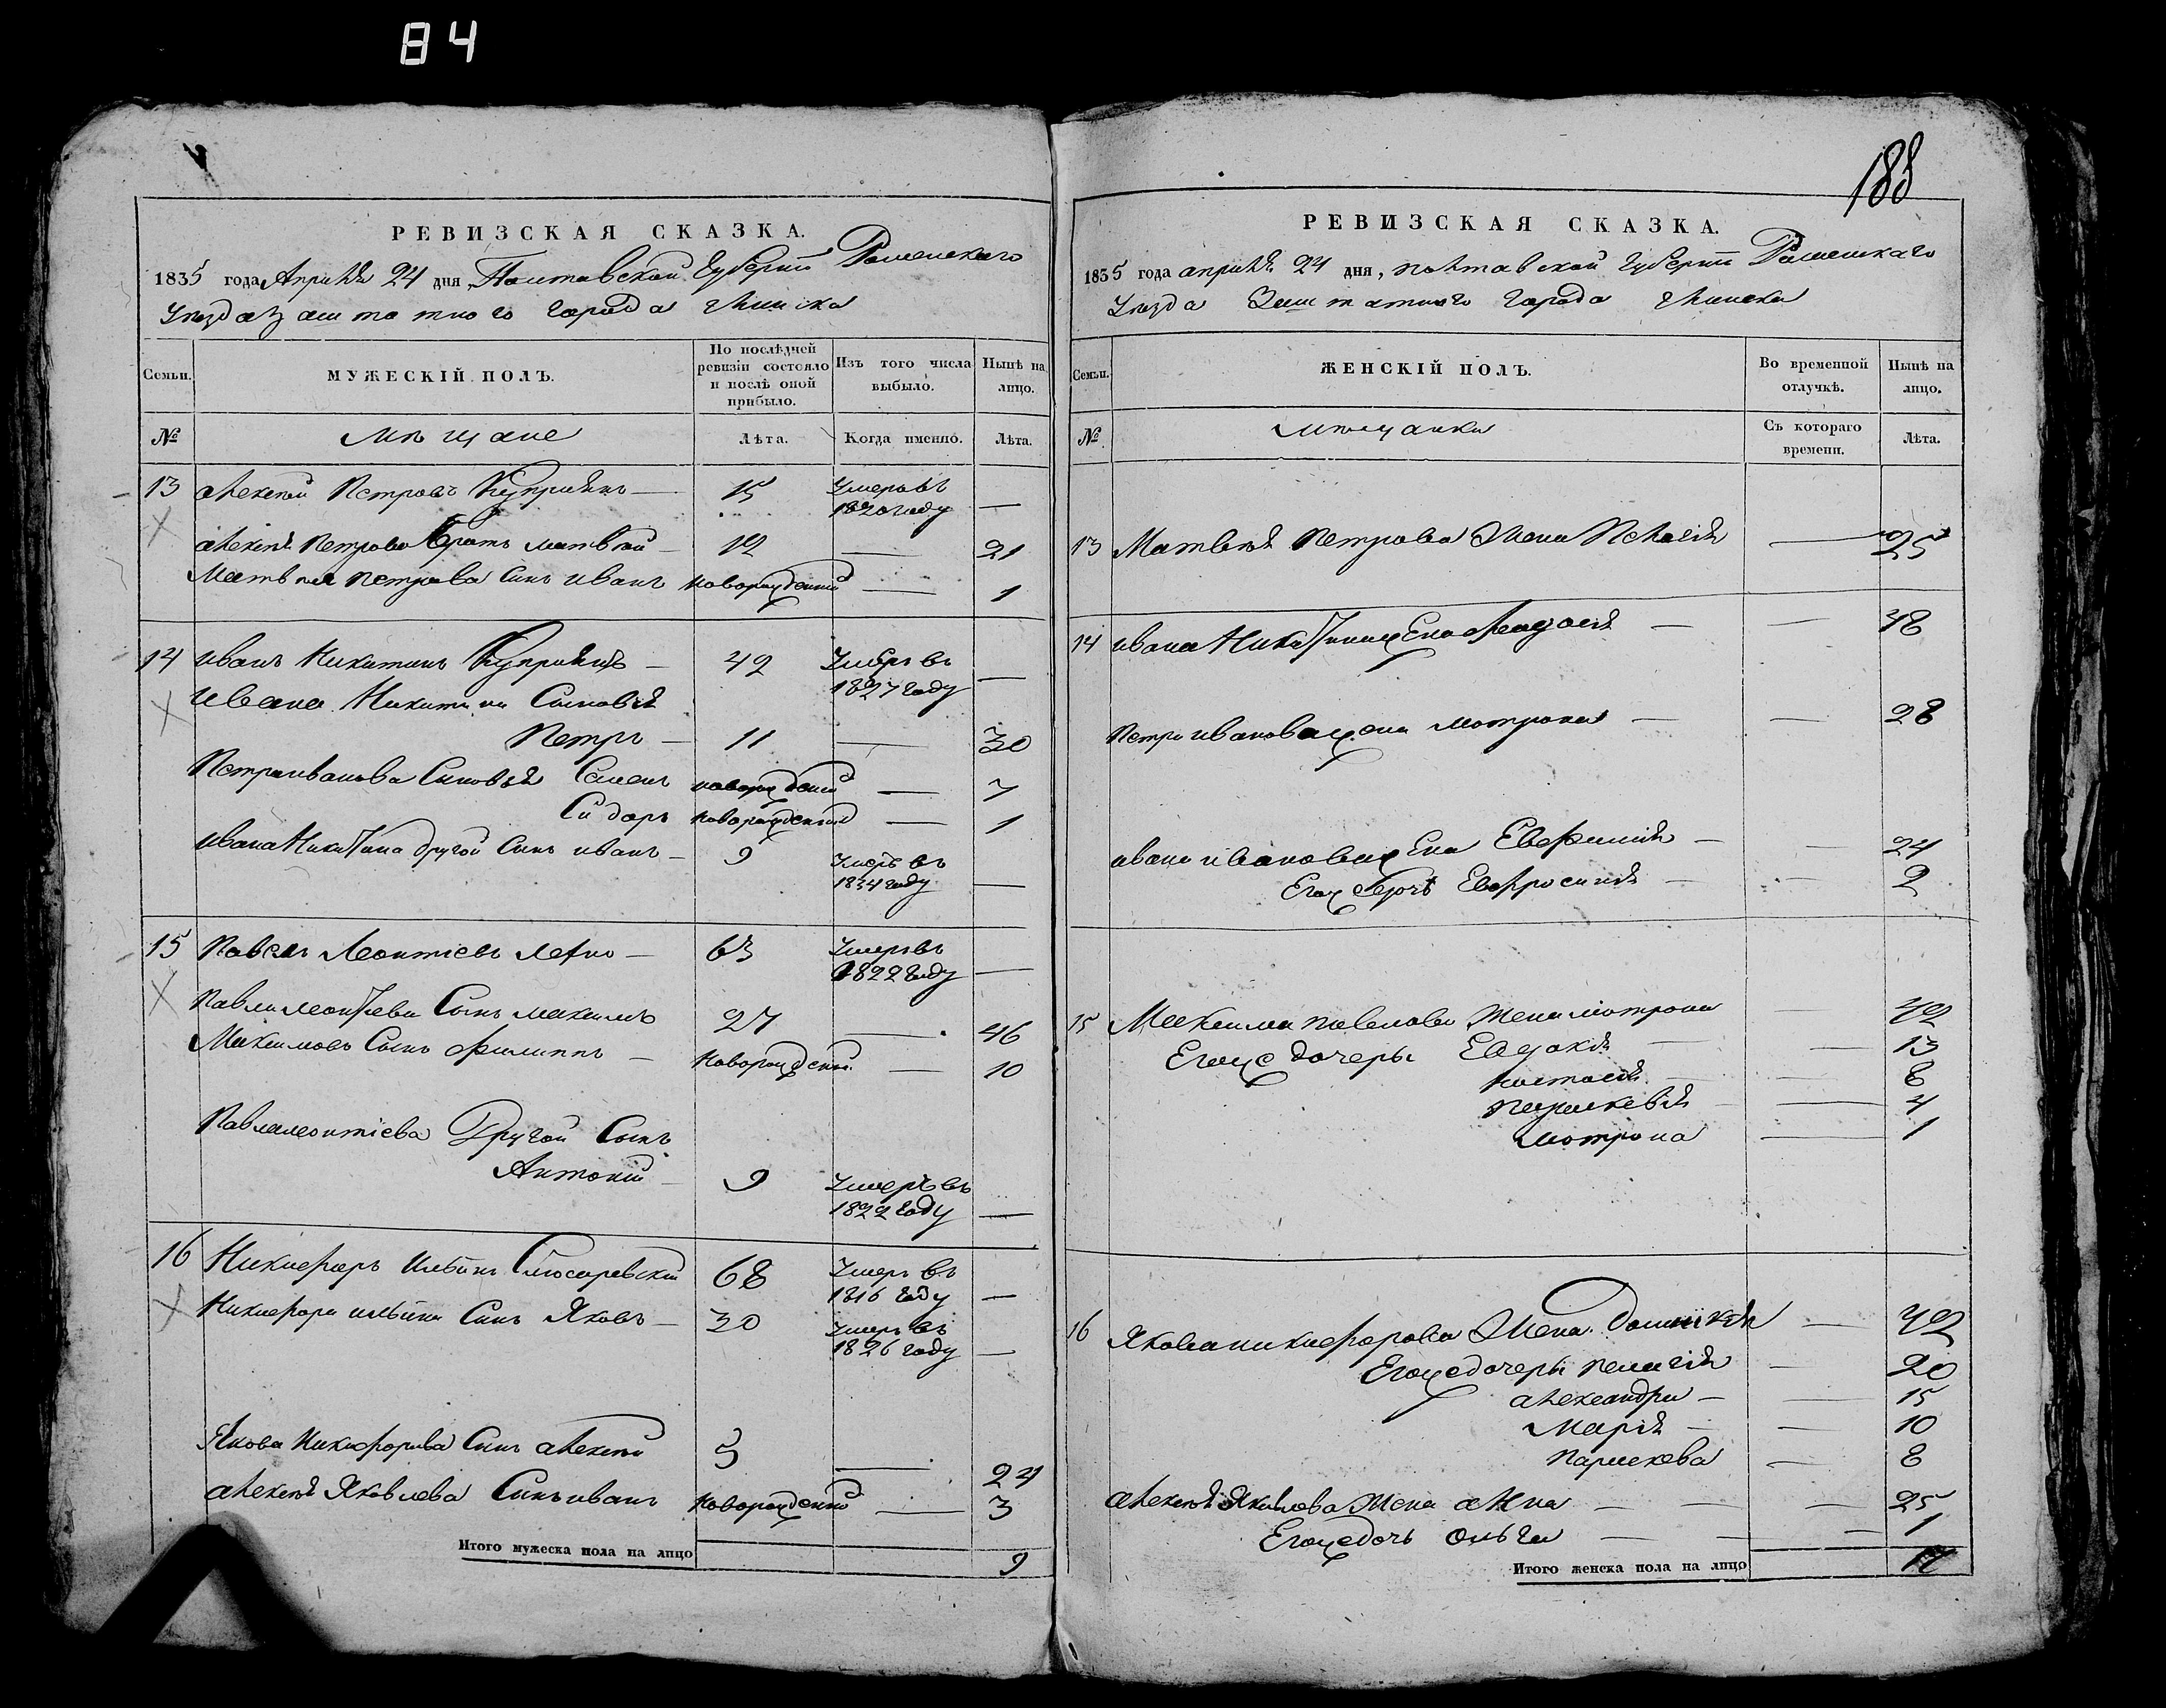 84
188
РЕВИЗСКАЯ СКАЗКА.
1835 года Апреля 24 дня, Полтавской губернiи Роменскаго
Уезда заштатного города Глинска
Семьи.
МУЖЕСКIЙ ПОЛЪ.
По послѣдней ревизiи состояло и послѣ оной прибыло.
Изъ того числа выбыло.
Нынѣ на лицо.
№
Мещане
Лѣта.
Когда именно.
Лѣта.
13 Алексей Петровъ 15 Умеръ въ 1820 году —
Алексея Петрова братъ Матвей — 12 — 21
Матвея Петрова сынъ Иванъ новорожденный — 1
14 Иванъ Никитинъ — 42 Умеръ въ 1827 году —
Ивана Никитина сыновья
Петръ — 11 — 30
Петра Иванова сыновья Семенъ новорожденный — 7
Сидоръ новорожденный — 1
Ивана Никитина другой сынъ Иванъ — 9 Умеръ въ 1834 году —
15 Павелъ Леонтiевъ — 63 Умеръ въ 1822 году —
Павла Леонтiева сынъ Максимъ 27 — 46
Максимовъ сынъ Филиппъ — новорожденный — 10
Павла Леонтiева другой сынъ
Антонiй — 9 Умеръ въ 1822 году —
16 Никифоръ Ильинъ Слюсаревскiй 68 Умеръ въ 1816 году —
Никифора Ильина сынъ Яковъ — 30 Умеръ въ 1826 году —
Якова Никифорова сынъ Алексей 5 — 24
Алексея Яковлева сынъ Иванъ новорожденный — 3
Итого мужеска пола на лицо 9
РЕВИЗСКАЯ СКАЗКА.
1835 года апреля 24 дня, полтавской губернiи Роменскаго
Уезда Заштатного города Глинска
Семьи.
ЖЕНСКIЙ ПОЛЪ.
Во временной отлучкѣ.
Нынѣ на лицо.
№
мещанки
Съ котораго времени.
Лѣта.
13 Матвея Петрова жена — 25
14 Ивана Никитина жена — — 48
Петра Иванова жена Мотрона — — 28
Ивана Иванова жена Евфимiя — — 24
Егожъ дочь Евфросинiя — — 2
15 Максима Павлова жена Мотрона — 42
Егоже дочеры Евдокiя — — 13
Настасiя — — 8
Параскевiя — — 4
Мотрона — 1
16 Якова Никифорова жена Домникiя — 42
Егоже дочеры Пелагiя — 20
Александра — — 15
Марiя — — 10
Параскева — 8
Алексея Яковлева жена Анна — — — 25
Егоже дочь Ольга — — — 1
Итого женска пола на лицо